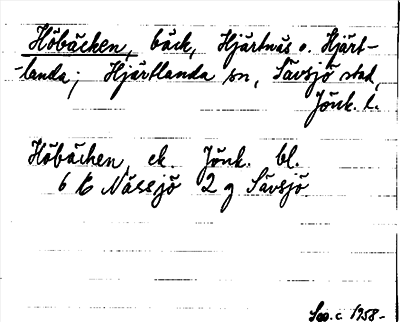 Höbäcken, bäck, Hjärtnäs o. Hjärt-
-landa; Hjärtlanda sn, Sävsjö stad,
Jönk. l.
Höbäcken, ek. Jönk. bl.
6 E Nässjö 2 g Sävsjö
1958-